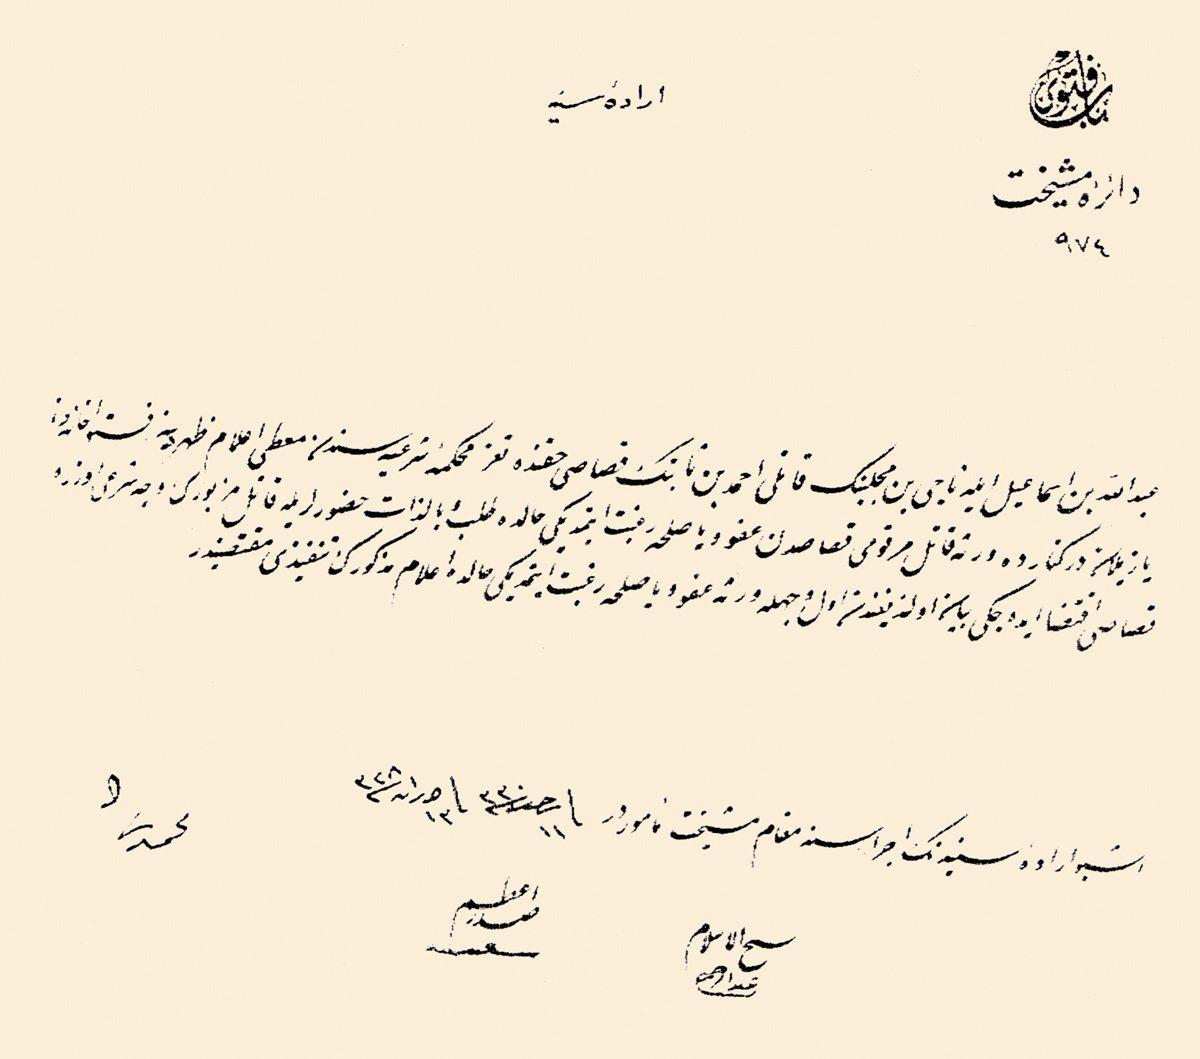 باب فتوى
ارادهٔ سنیه
دائرهٔ مشیخت
٩٧٤
عبد الله بن اسماعیل ایله ناجی بن قاتلی احمد بن ثابتك قصاصی حقنده تعز محكمهٔ شرعیه سندن معطی اعلام ظهرینه
یازیلان دركنارده ورثهٔ قاتل مرقومی قصاصدن عفو ویا صلحه رغبت ایتمدیكی حالده طلب و بالذات حضورلریله قاتل مزبورك وجه شرعی اوزره
قصاصی اقتضا ایده جكی بیان اولندیغندن اول وجهله ورثه عفو ویا صلحه رغبت ایتمدیكی حالده اعلام مذكورك تنفیذی مقتضیدر
اشبو ارادهٔ سنیه نك اجراسنه مقام مشیخت مأموردر ١١ ٣٣٠ ١٣ حزیران ٣٢٨
محمد رشاد
صدر اعظم
سعید
شیخ الاسلام
عبد الرحمن